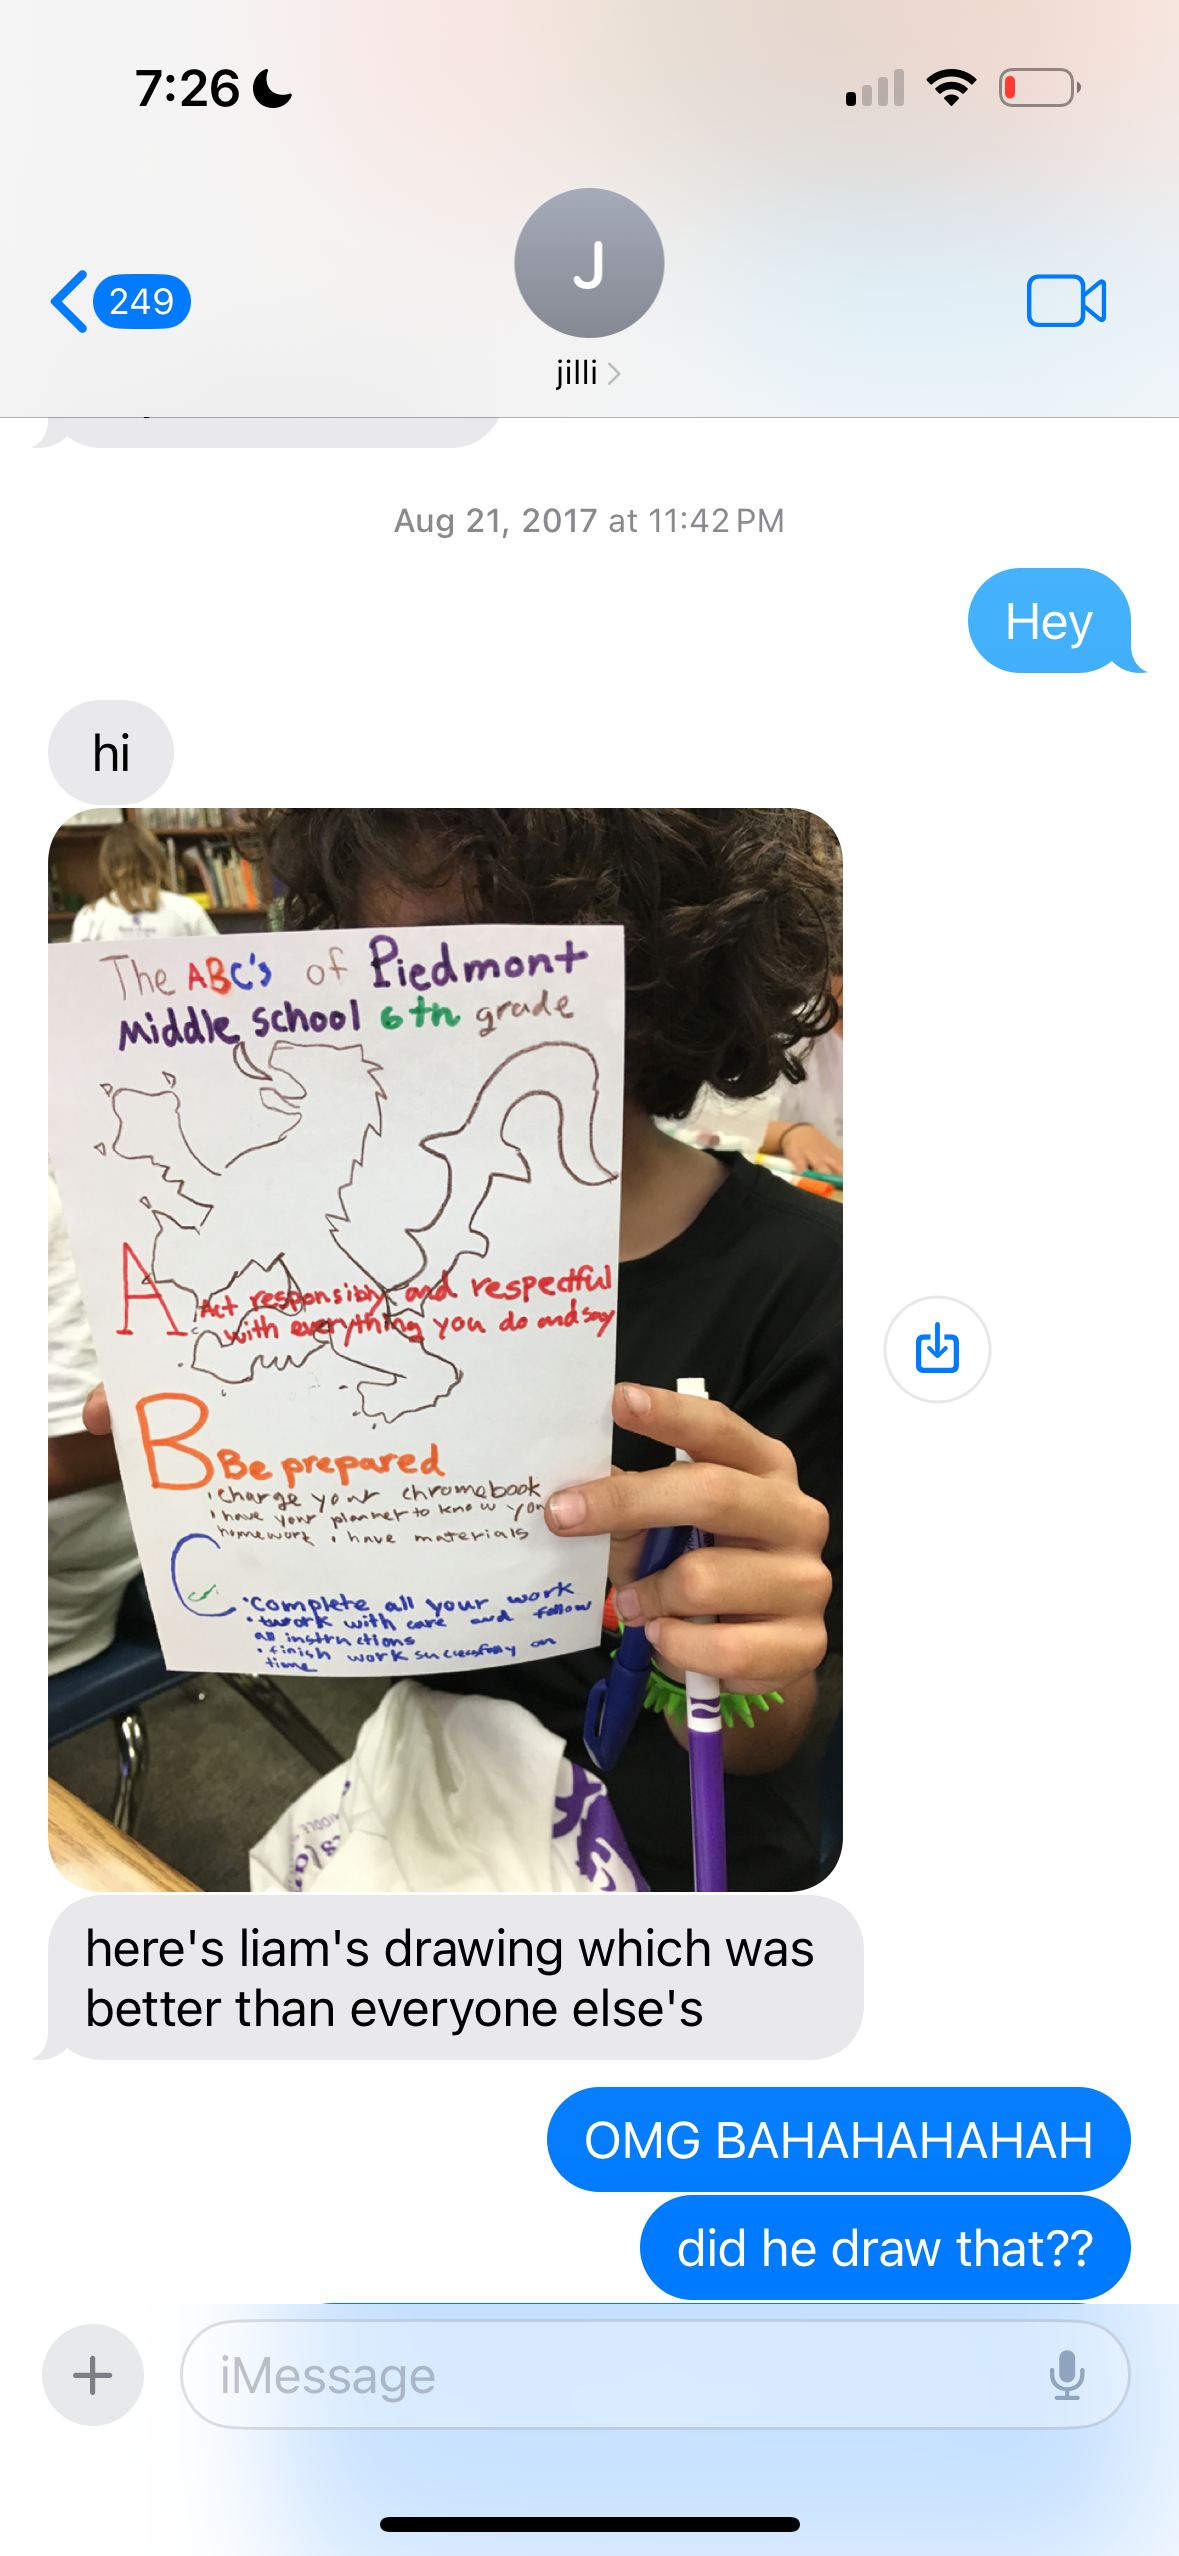 7:26
249
J
jilli
Aug 21, 2017 at 11:42 PM
Hey
hi
The ABC's of Piedmont
Middle school 6th grade
A
Act responsibly and respectful
with everything you do and say
B
Be prepared
charge your chromebook
have your planner to know you
homework • have materials
C
•Complete all your work
• work with care and follow
all instructions
• finish work successfully on
time
here's liam's drawing which was
better than everyone else's
OMG BAHAHAHAHAH
did he draw that??
iMessage